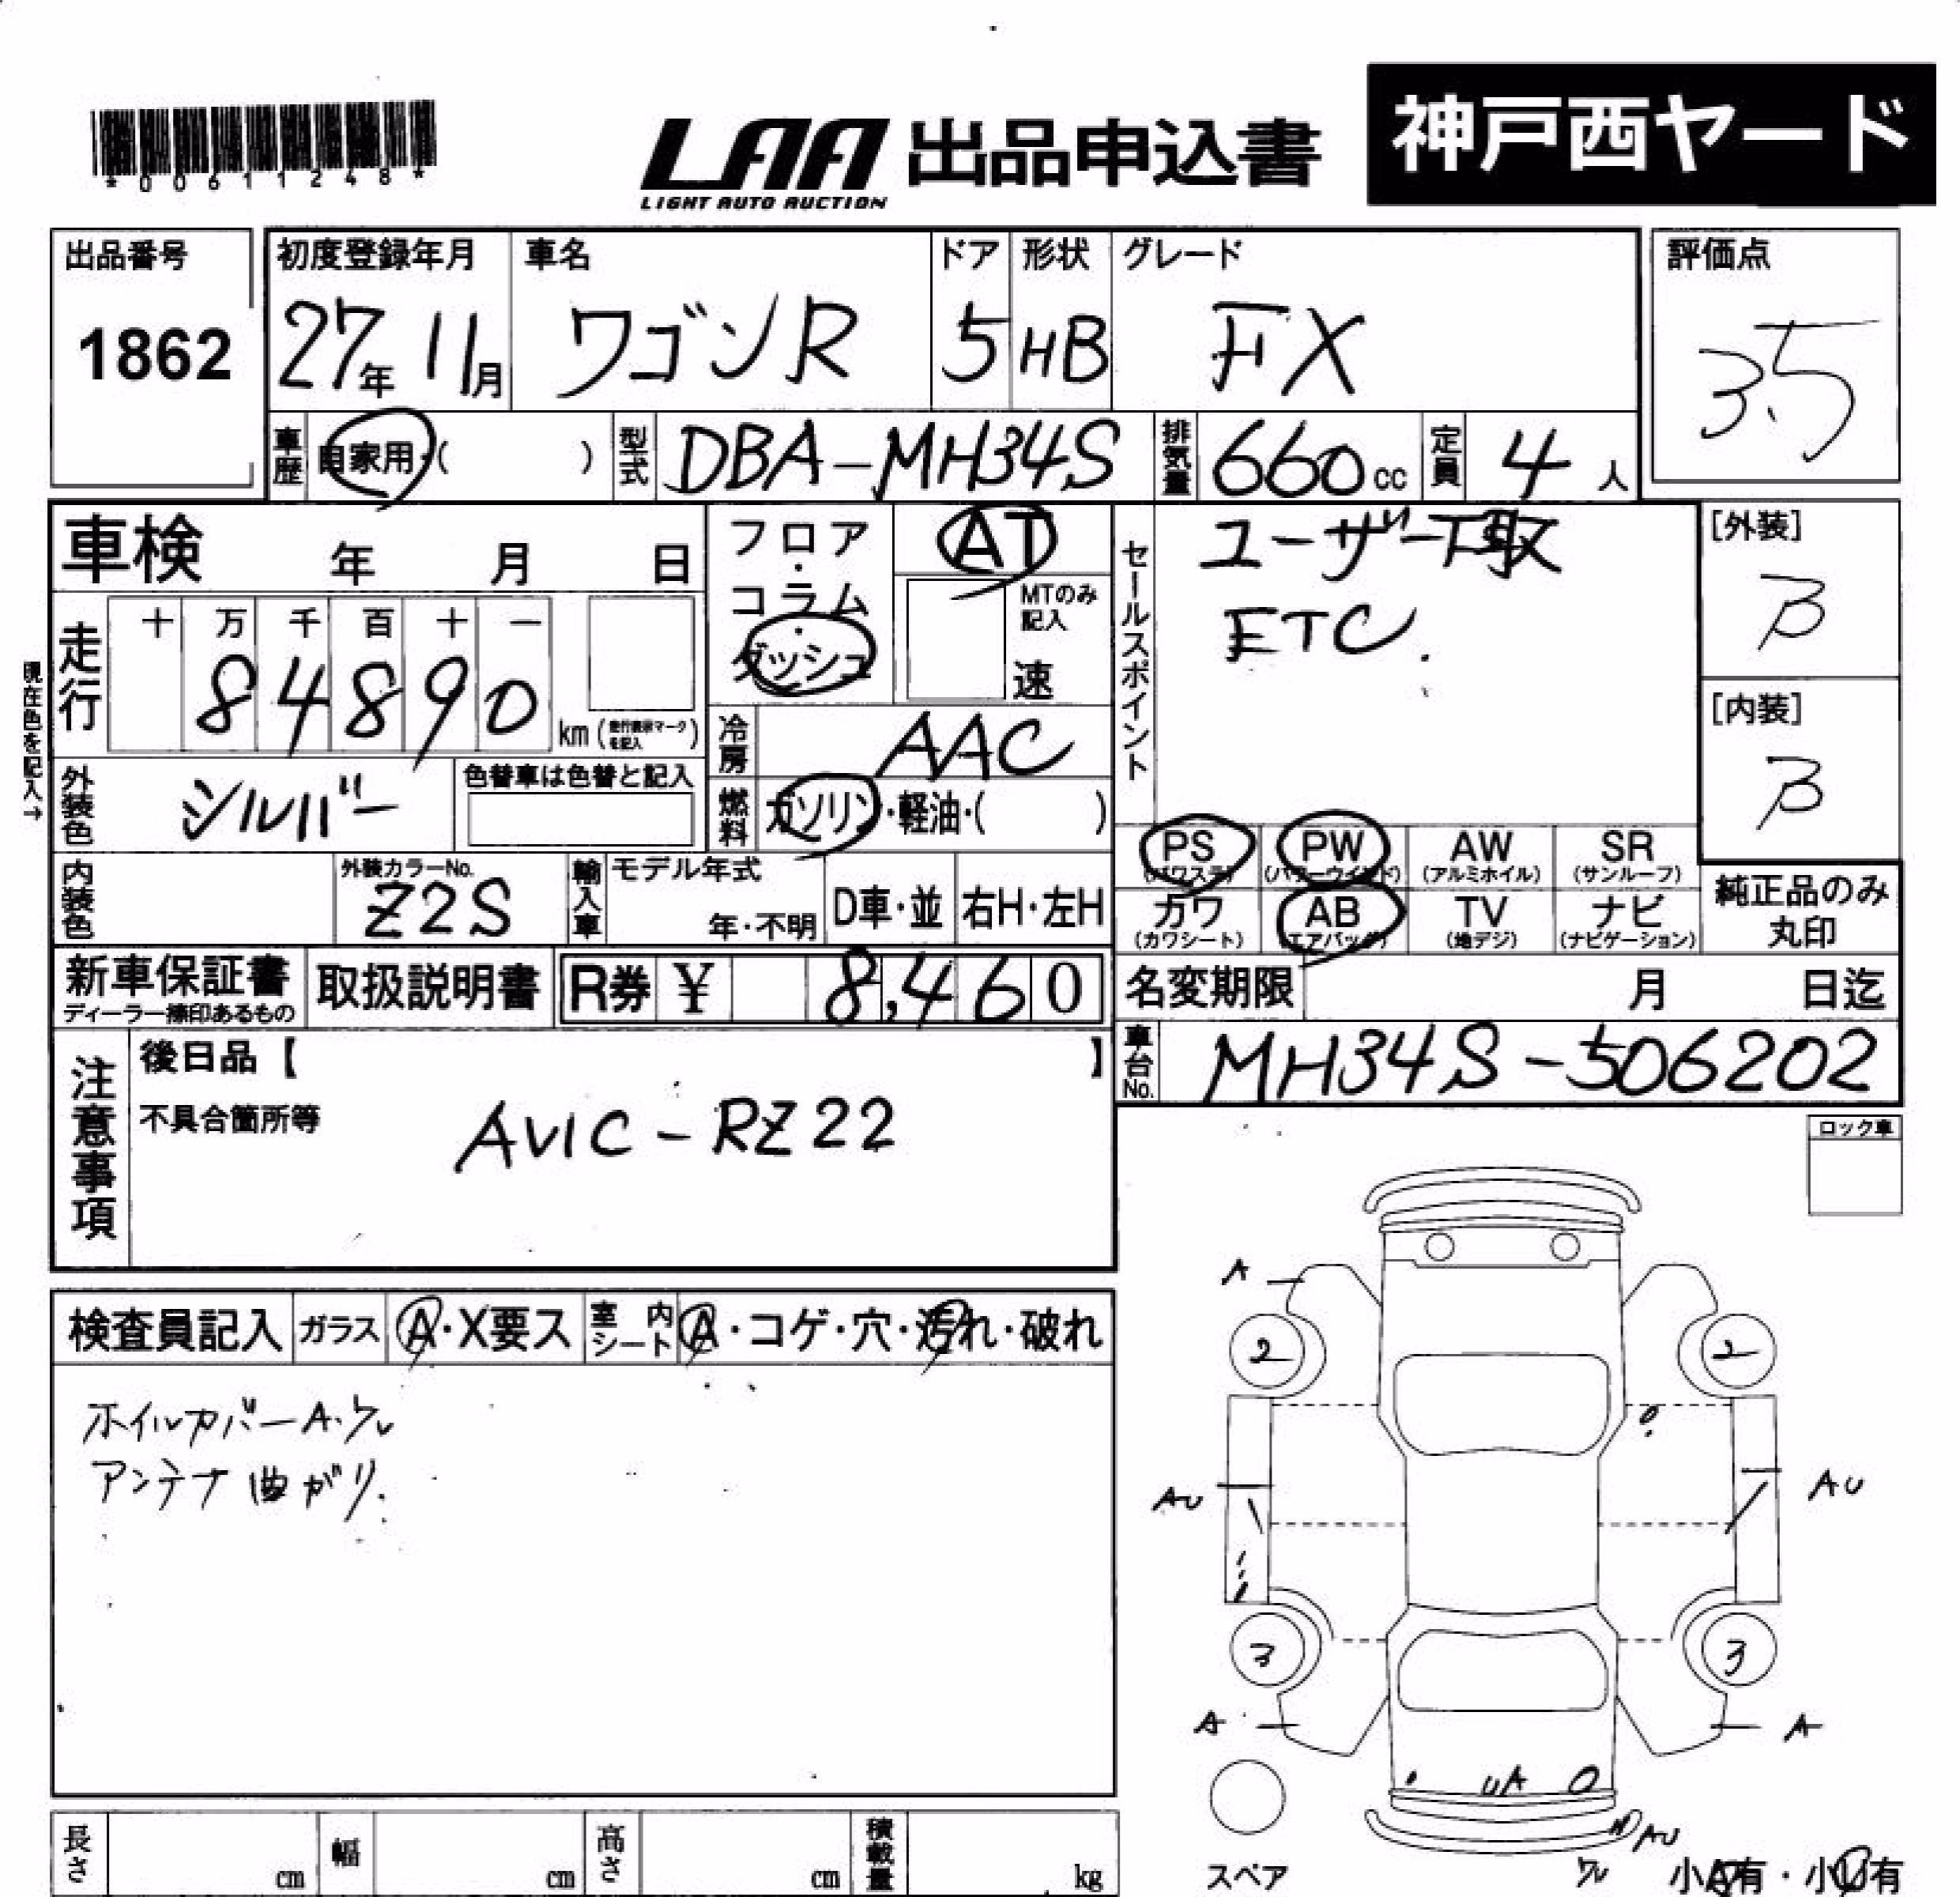 *00611248*
LAA 出品申込書
LIGHT AUTO AUCTION
神戸西ヤード
出品番号
1862
初度登録年月
27年 11月
車名
ワゴンR
ドア
5
形状
HB
グレード
FX
評価点
3.5
車歴 自家用・( )
型式 DBA-MH34S
排気量 660cc
定員 4人
車検 年 月 日
フロア・コラム・ダッシュ
AT
MTのみ記入
速
セールスポイント
ユーザー下取
ETC.
[外装]
B
[内装]
B
現在色を記入→
走行
十 万 千 百 十 一
8 4 8 9 0
km (走行表示マークを記入)
冷房 AAC
燃料 ガソリン・軽油・( )
外装色 シルバー
色替車は色替と記入
PS (パワステ)
PW (パワーウインド)
AW (アルミホイル)
SR (サンルーフ)
カワ (カワシート)
AB (エアバッグ)
TV (地デジ)
ナビ (ナビゲーション)
純正品のみ丸印
内装色
外装カラーNo.
Z2S
輸入車
モデル年式
年・不明
D車・並
右H・左H
新車保証書
ディーラー捺印あるもの
取扱説明書
R券 ¥ 8,460
名変期限 月 日迄
車台No. MH34S-506202
注意事項
後日品【 】
不具合箇所等
AVIC-RZ22
ロック車
検査員記入
ガラス A・X要ス
室内シート A・コゲ・穴・汚れ・破れ
ホイルカバーA.ワレ
アンテナ曲がり.
A
2 2
AU AU
3 3
A A
UA
AU
スペア
ワレ
小A有・小U有
長さ cm
幅 cm
高さ cm
積載量 kg